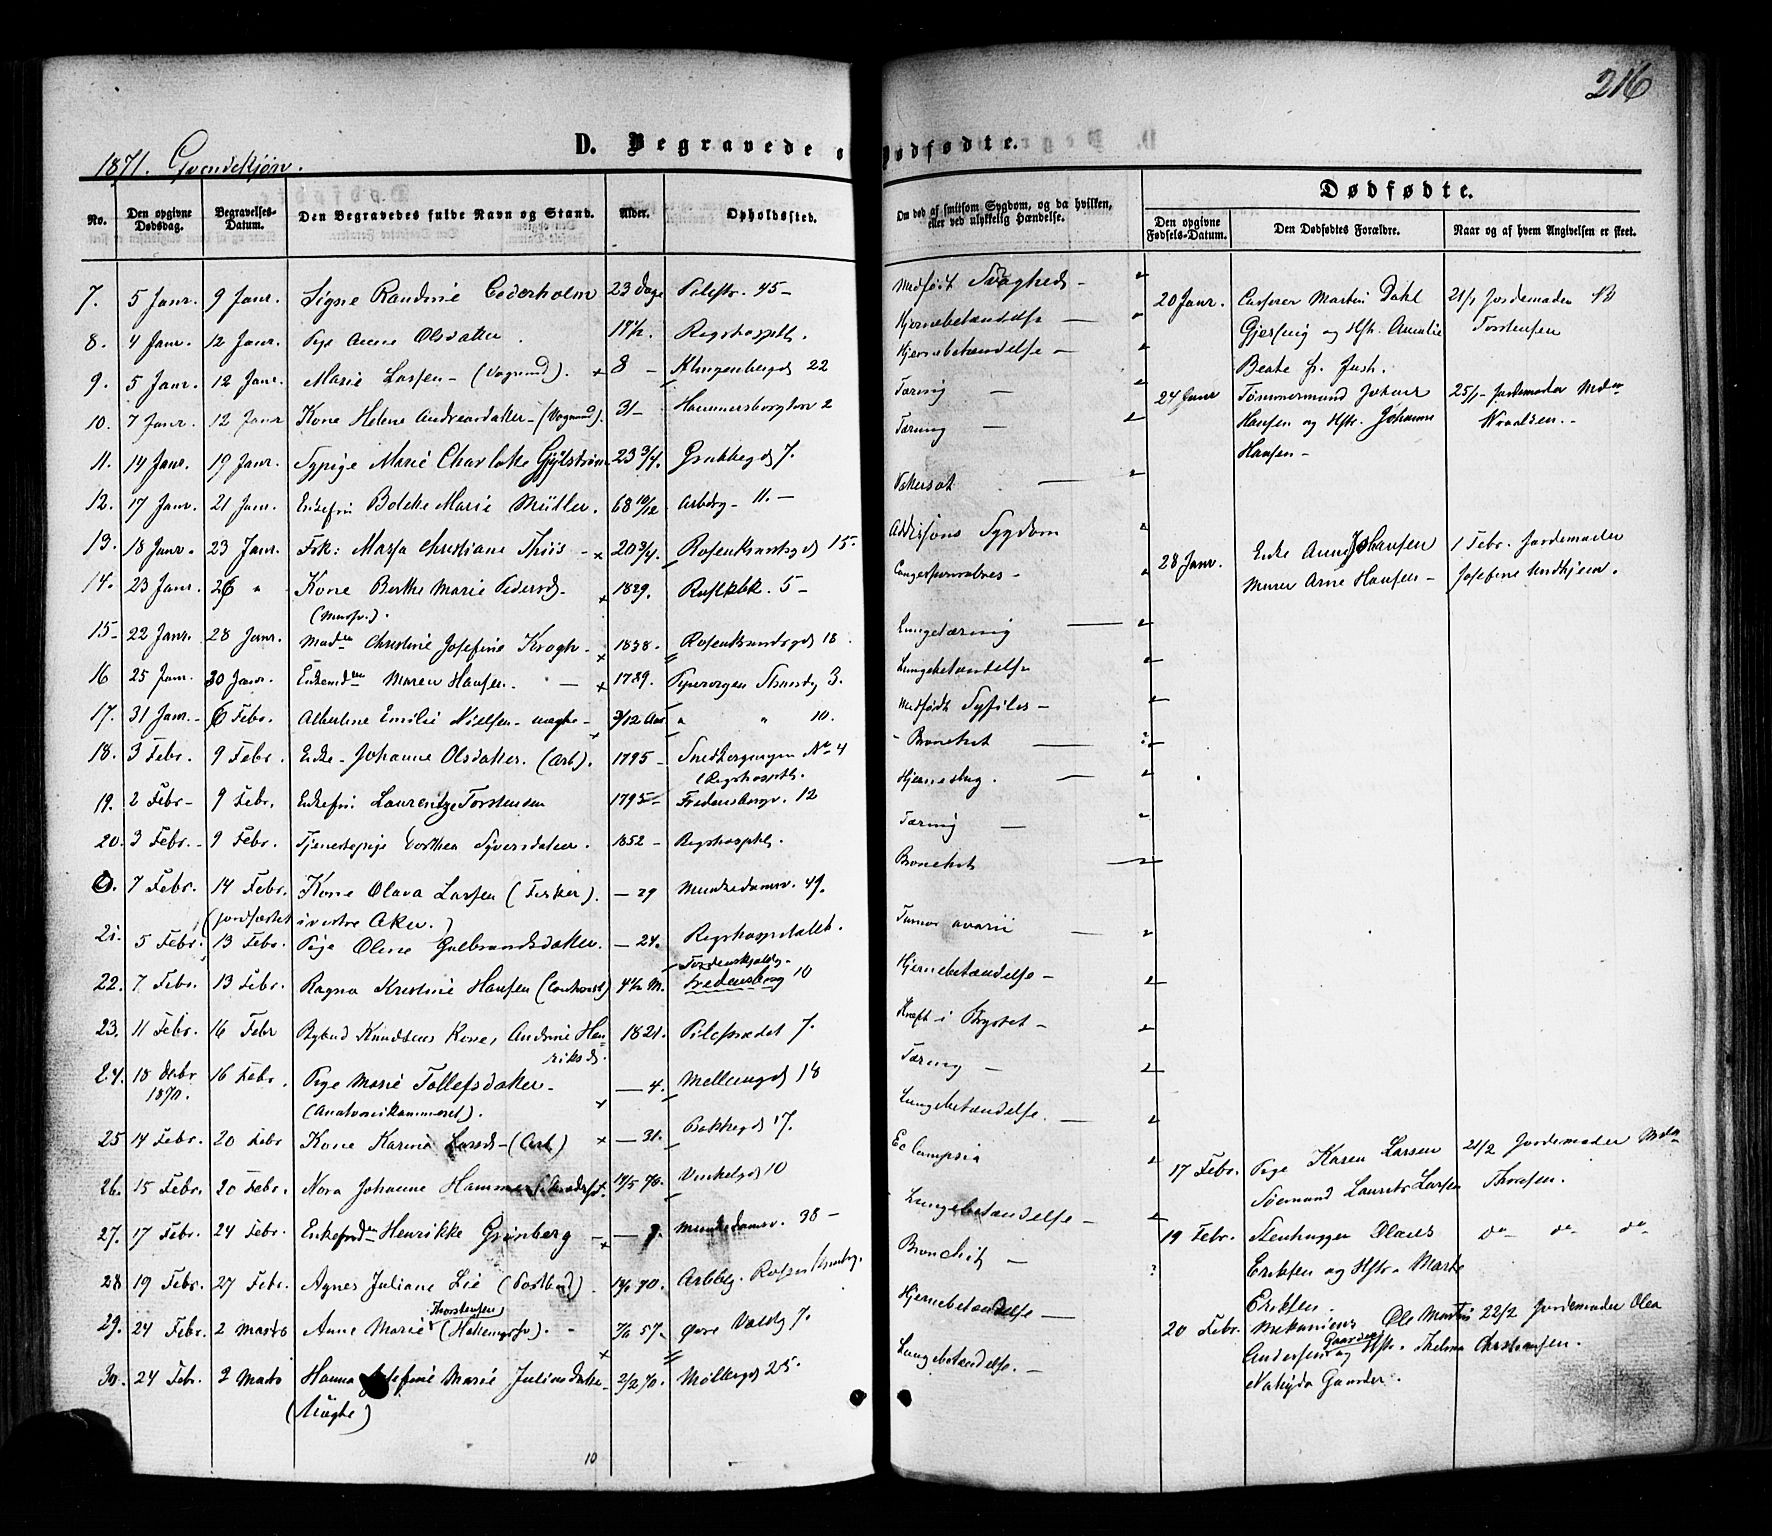 216
1871. Qvindekjøn.
D. Begravede o
Dødfødte.
No.
Den opgivne Dødsdag.
Begravelses-Datum.
Den Begravedes fulde Navn og Stand.
Alder.
Opholdssted.
Om død af smitsom Sygdom, og da hvilken, eller ved ulykkelig Hændelse.
Dødfødte.
Den opgivne Fødsels-Datum.
Den Dødfødtes Forældre.
Naar og af hvem Angivelsen er skeet.
7. 5 Janr. 9 Janr. Signe Randine Cederholm 23 Dage Pilestr. 45- Medfødt Svaghed -
8. 4 Janr. 12 Janr. Pige Anne Olsdatter Rigshospitl. Hjernebetændelse
9. 5 Janr. 12 Janr. Marie Larsen - 8 - Klingenbergd 22 Hjernebetændelse -
10. 7 Janr. 12 Janr Kone Helene Andreasdatter - 31 - Hammersborgtorv 2 Tæring
11. 14 Janr. 19 Janr. Sypige Marie Charlotte 23 3/4. Grubbegd 7. Tæring
12. 17 Janr. 21 Janr. Enkefru Bolette Marie Müller. 68 10/12 Arbderg - 11. - Vattersot
13. 18 Janr. 23 Janr. Frk: Marja Christiane Thiis - 20 3/4. Rosenkrantzgd 15. Addisons Sygdom
14. 23 Janr. 26 " Kone Berthe Marie Pedersd. 1829. 5 -
(Mursv.)
15 - 22 Janr. 28 Janr. Madm Christine Josefine Krogh - 1838. Rosenkrandsgd 18. Lungetæring
16 25 Janr. 30 Janr. Enkemdm Maren Hansen. 1789. Pipervigen Strandg 3. Lungebetændelse
17. 31 Janr. 6 Febr. Albertine Emilie Nielsen uægte - 3/12 Aar " " 10. Medfødt Syfilis -
18. 3 Febr. 9 Febr. Enke - Johanne Olsdatter. (Arb). 1795 - No 4 - Bronchit
(Rigshospitl.
19. 2 Febr - 9 Febr. Enkefru Laurentze Torstensen 1795 - Fredensborgv. 12 Hjerneslag.
20. 3 Febr. - 9 Febr. Tjenestepige Dorthea Syversdatter. 1852 - Rigshospitl. Tæring
0. 7 Febr. 14 Febr. Kone Olava Larsen (Fisker). - 29 Munkedamsv. 49. Bronchit
(jordfæstet i vestre Aker.)
21. 5 Febr. 13 Febr. Pige Oline Gulbrandsdatter. - 24. Rigshospitalet. Tumor ovarii
22. 7 Febr. 13 Febr. Ragna Kristine Hansen 4 1/2 M. Tordenskjoldsg. Fredensborg 10 Hjernebetændelse -
23. 11 Febr. 16 Febr Bybud Knudsens Kone, Andrine Hen- 1821. Pilestrædet 7. Kræft i Brystet -
riksd.
24. 18 Decbr 1870. 16 Febr. Pige Marie Tollefsdatter - - 4. Mellemgd 18 Tæring
(Anatomikammeret).
25 14 Febr. 20 Febr Kone Karine Larsd - (Arb) - 31. Bakkegd 17. Lungebetændelse.
26. 15 Febr. 20 Febr. Nora Johanne Hammer Vinkelgd 10 Eclampsia
27. 17 Febr. 24 Febr. Henrikke Grønberg Munkedamsv. 38 - Lungebetændelse -
28 19 Febr. 27 Febr. Agnes Juliane Lie (Postbud). Bronchit
29. 24 Febr. 2 Marts Anne Marie Thorstensen Øvre Voldg 7. Hjernebetændelse
30. 24 Febr. 2 Marts Hanna Josefine Marie Juliusdatter 2/2 70. Møllergd 25. Lungebetændelse.
(Uægte)
10
20 Janr. Martin Dahl
Gjersvig og Hstr. Amalie
Beate f. Just.
21/1 Jordemoder
Torstensen
24 Janr Tømmermand Johan
Hansen og Hstr. Johanne
Hansen -
25/1 - Jordemoder Mdm
Wraalsen. -
28 Janr. Enke Anne Johansen
Murer Arne Hansen -
1 Febr. Jordemoder
Josefine Undhjem.
17 Febr. Pige Karen Larsen
Sømand Laurits Larsen
21/2 Jordemoder Mdm
Thoresen.
19 Febr. Stenhugger Olaus
Eriksen og Hstr. Marte
Eriksen.
do do do
20 Febr. Mekanicus Ole Martin
Andersen Gaarder og Hstr. Thelma
22/2 Jordemoder Olea
Christensen.
Gaarder.